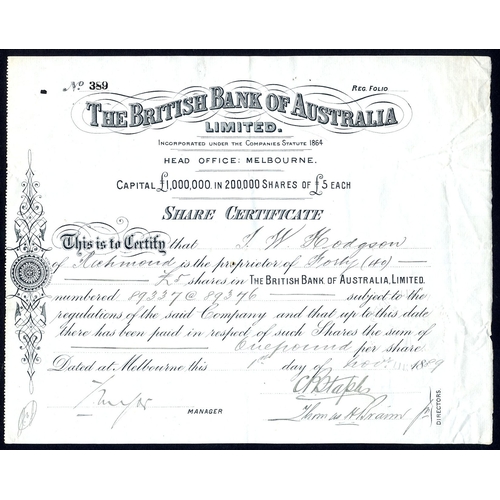 No 389
REG. FOLIO
THE BRITISH BANK OF AUSTRALIA
LIMITED.
INCORPORATED UNDER THE COMPANIES STATUTE 1864
HEAD OFFICE: MELBOURNE.
CAPITAL £1,000,000, IN 200,000 SHARES OF £5 EACH
SHARE CERTIFICATE
This is to Certify that T. W. Hodgson
of Richmond is the proprietor of Forty (40)
£5 shares in THE BRITISH BANK OF AUSTRALIA, LIMITED.
numbered 89337 @ 89376 subject to the
regulations of the said Company and that up to this date
there has been paid in respect of such Shares the sum of
One pound per share
Dated at Melbourne this 1st day of 1889
MANAGER
Thomas H
DIRECTORS.